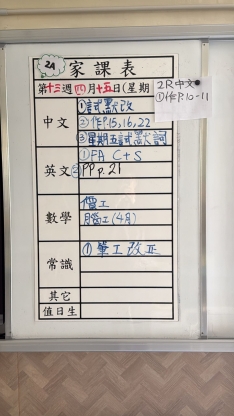 2A
家課表
第十三週四月十五日(星期
中文
①試默改
②作P.15,16,22
③星期五試默詞
英文
①FA C+S
②PP p.21
數學
價工
腦工(4月)
常識
①筆工改正
其它
值日生
2R中文
①作P.10-11